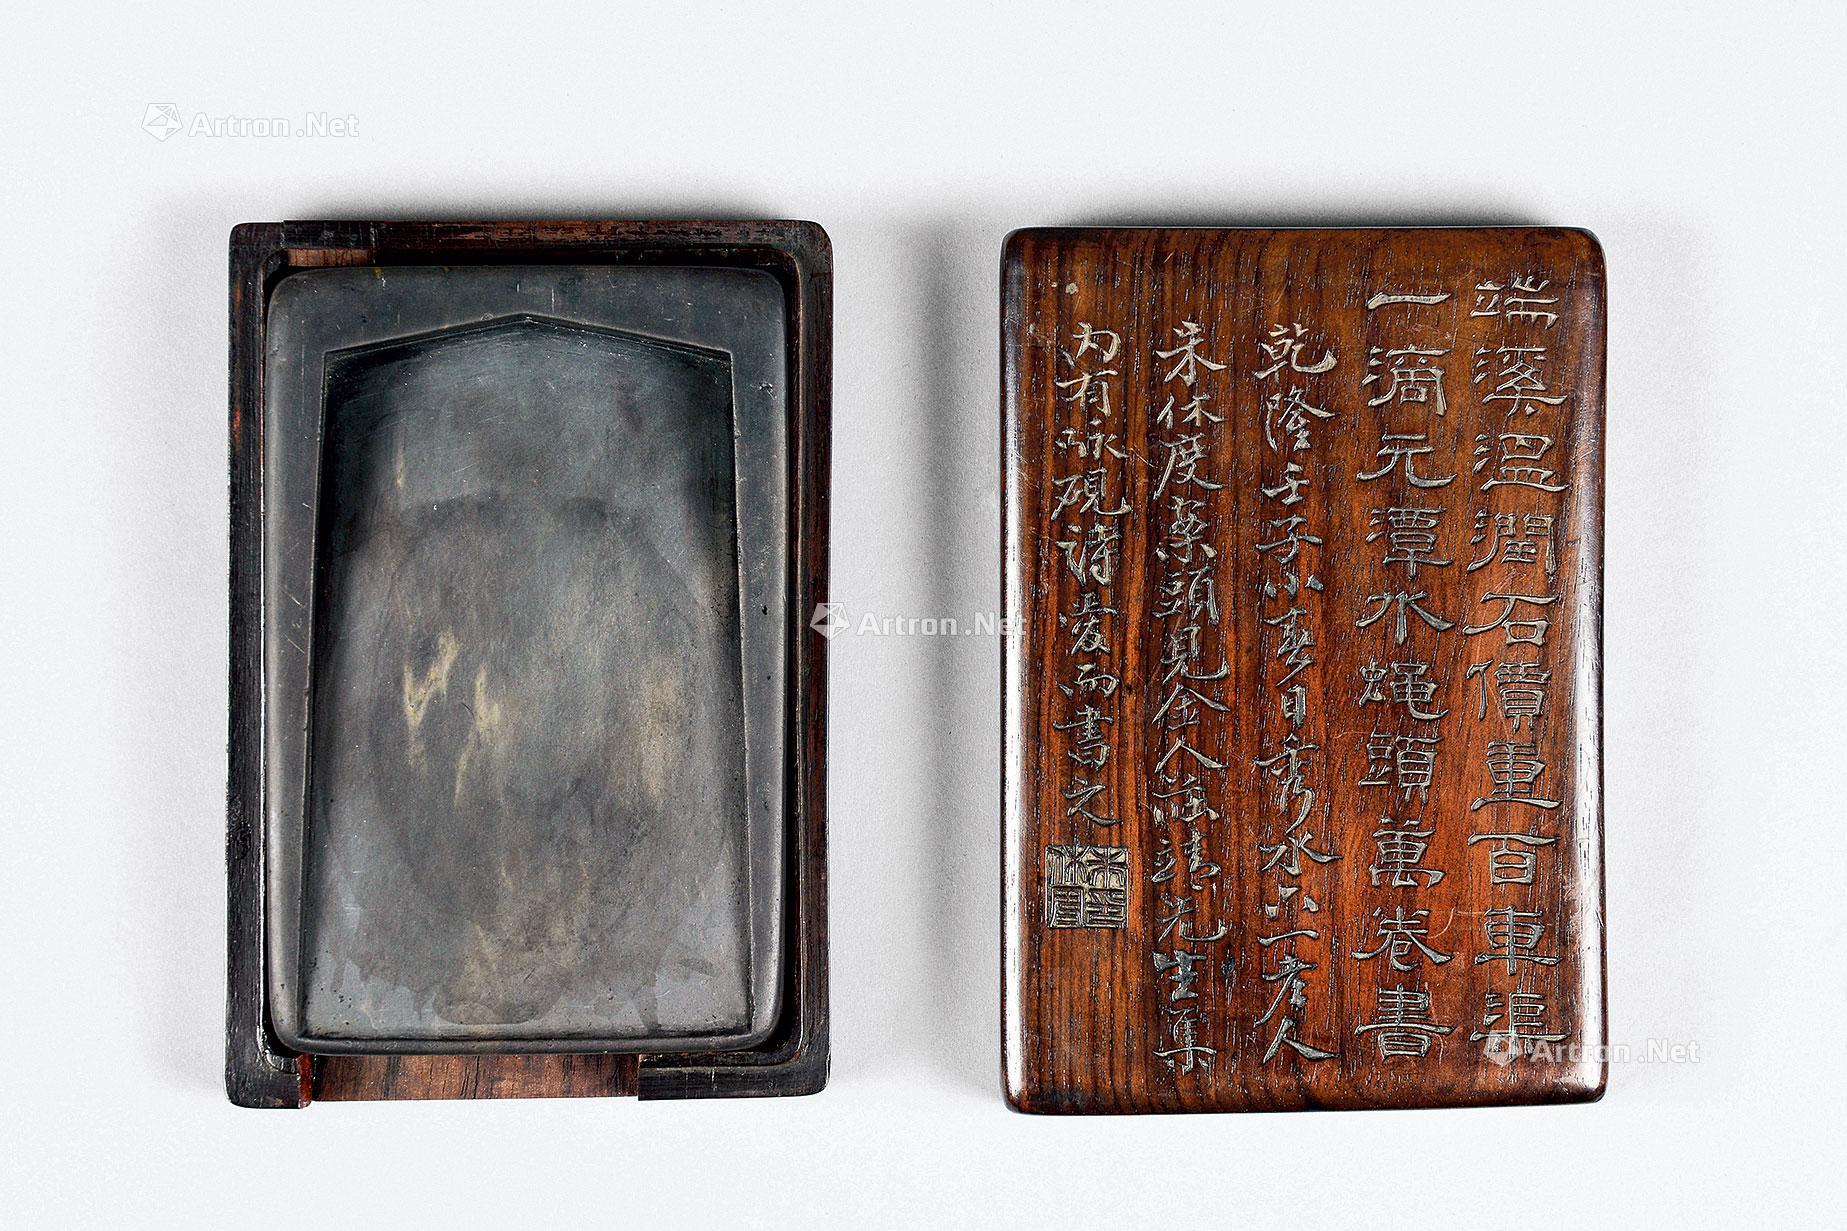 端溪溫潤石價重百車渠
一滴元潭水蠅頭萬卷書
乾隆壬子小春日秀水六一老人
朱休度案頭見金人莊靖先生集
内有詠硯詩愛而書之
朱休度印
Artron.Net
Artron.Net
Artron.Net